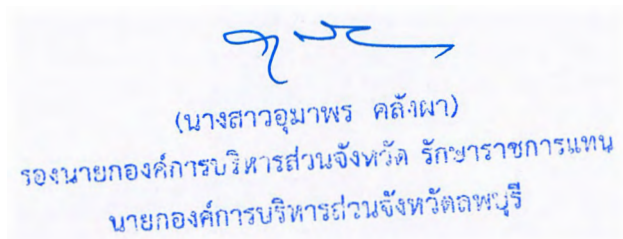 (นางสาวอุมาพร คลังผา)
รองนายกองค์การบริหารส่วนจังหวัด รักษาราชการแทน
นายกองค์การบริหารส่วนจังหวัดลพบุรี